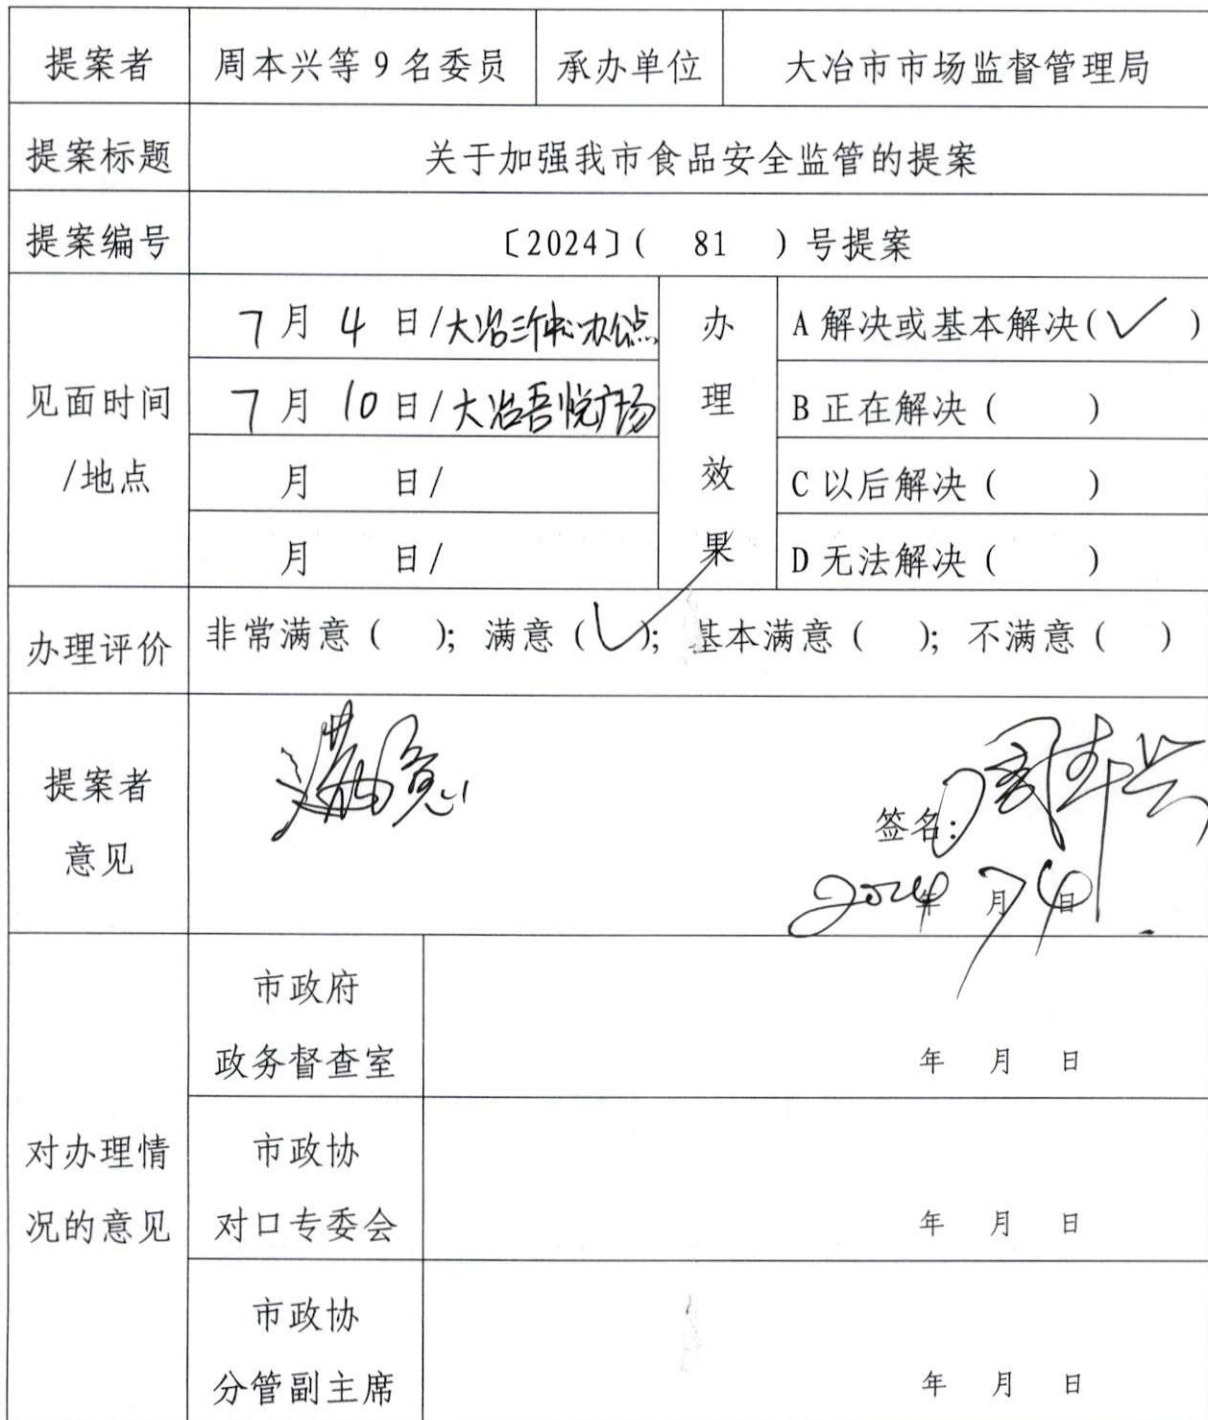 提案者 周本兴等9名委员 承办单位 大冶市市场监督管理局
提案标题 关于加强我市食品安全监管的提案
提案编号 〔2024〕( 81 )号提案
见面时间
/地点
7月 4 日/大冶三中
7月 10日/大冶吾悦广场
月 日/
月 日/
办
理
效
果
A解决或基本解决(✓)
B正在解决( )
C以后解决( )
D无法解决( )
办理评价 非常满意( ); 满意(✓); 基本满意( ); 不满意( )
提案者
意见
满意!
签名: 周本兴
2024年 7月4日
对办理情
况的意见
市政府
政务督查室
年 月 日
市政协
对口专委会
年 月 日
市政协
分管副主席
年 月 日